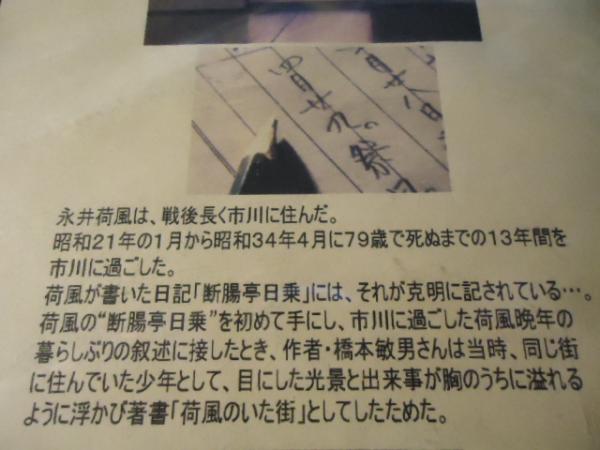 四月廿九。祭日
四月廿八日
永井荷風は、戦後長く市川に住んだ。
昭和21年の1月から昭和34年4月に79歳で死ぬまでの13年間を
市川に過ごした。
荷風が書いた日記「断腸亭日乗」には、それが克明に記されている…。
荷風の“断腸亭日乗”を初めて手にし、市川に過ごした荷風晩年の
暮らしぶりの叙述に接したとき、作者・橋本敏男さんは当時、同じ街
に住んでいた少年として、目にした光景と出来事が胸のうちに溢れる
ように浮かび著書「荷風のいた街」としてしたためた。